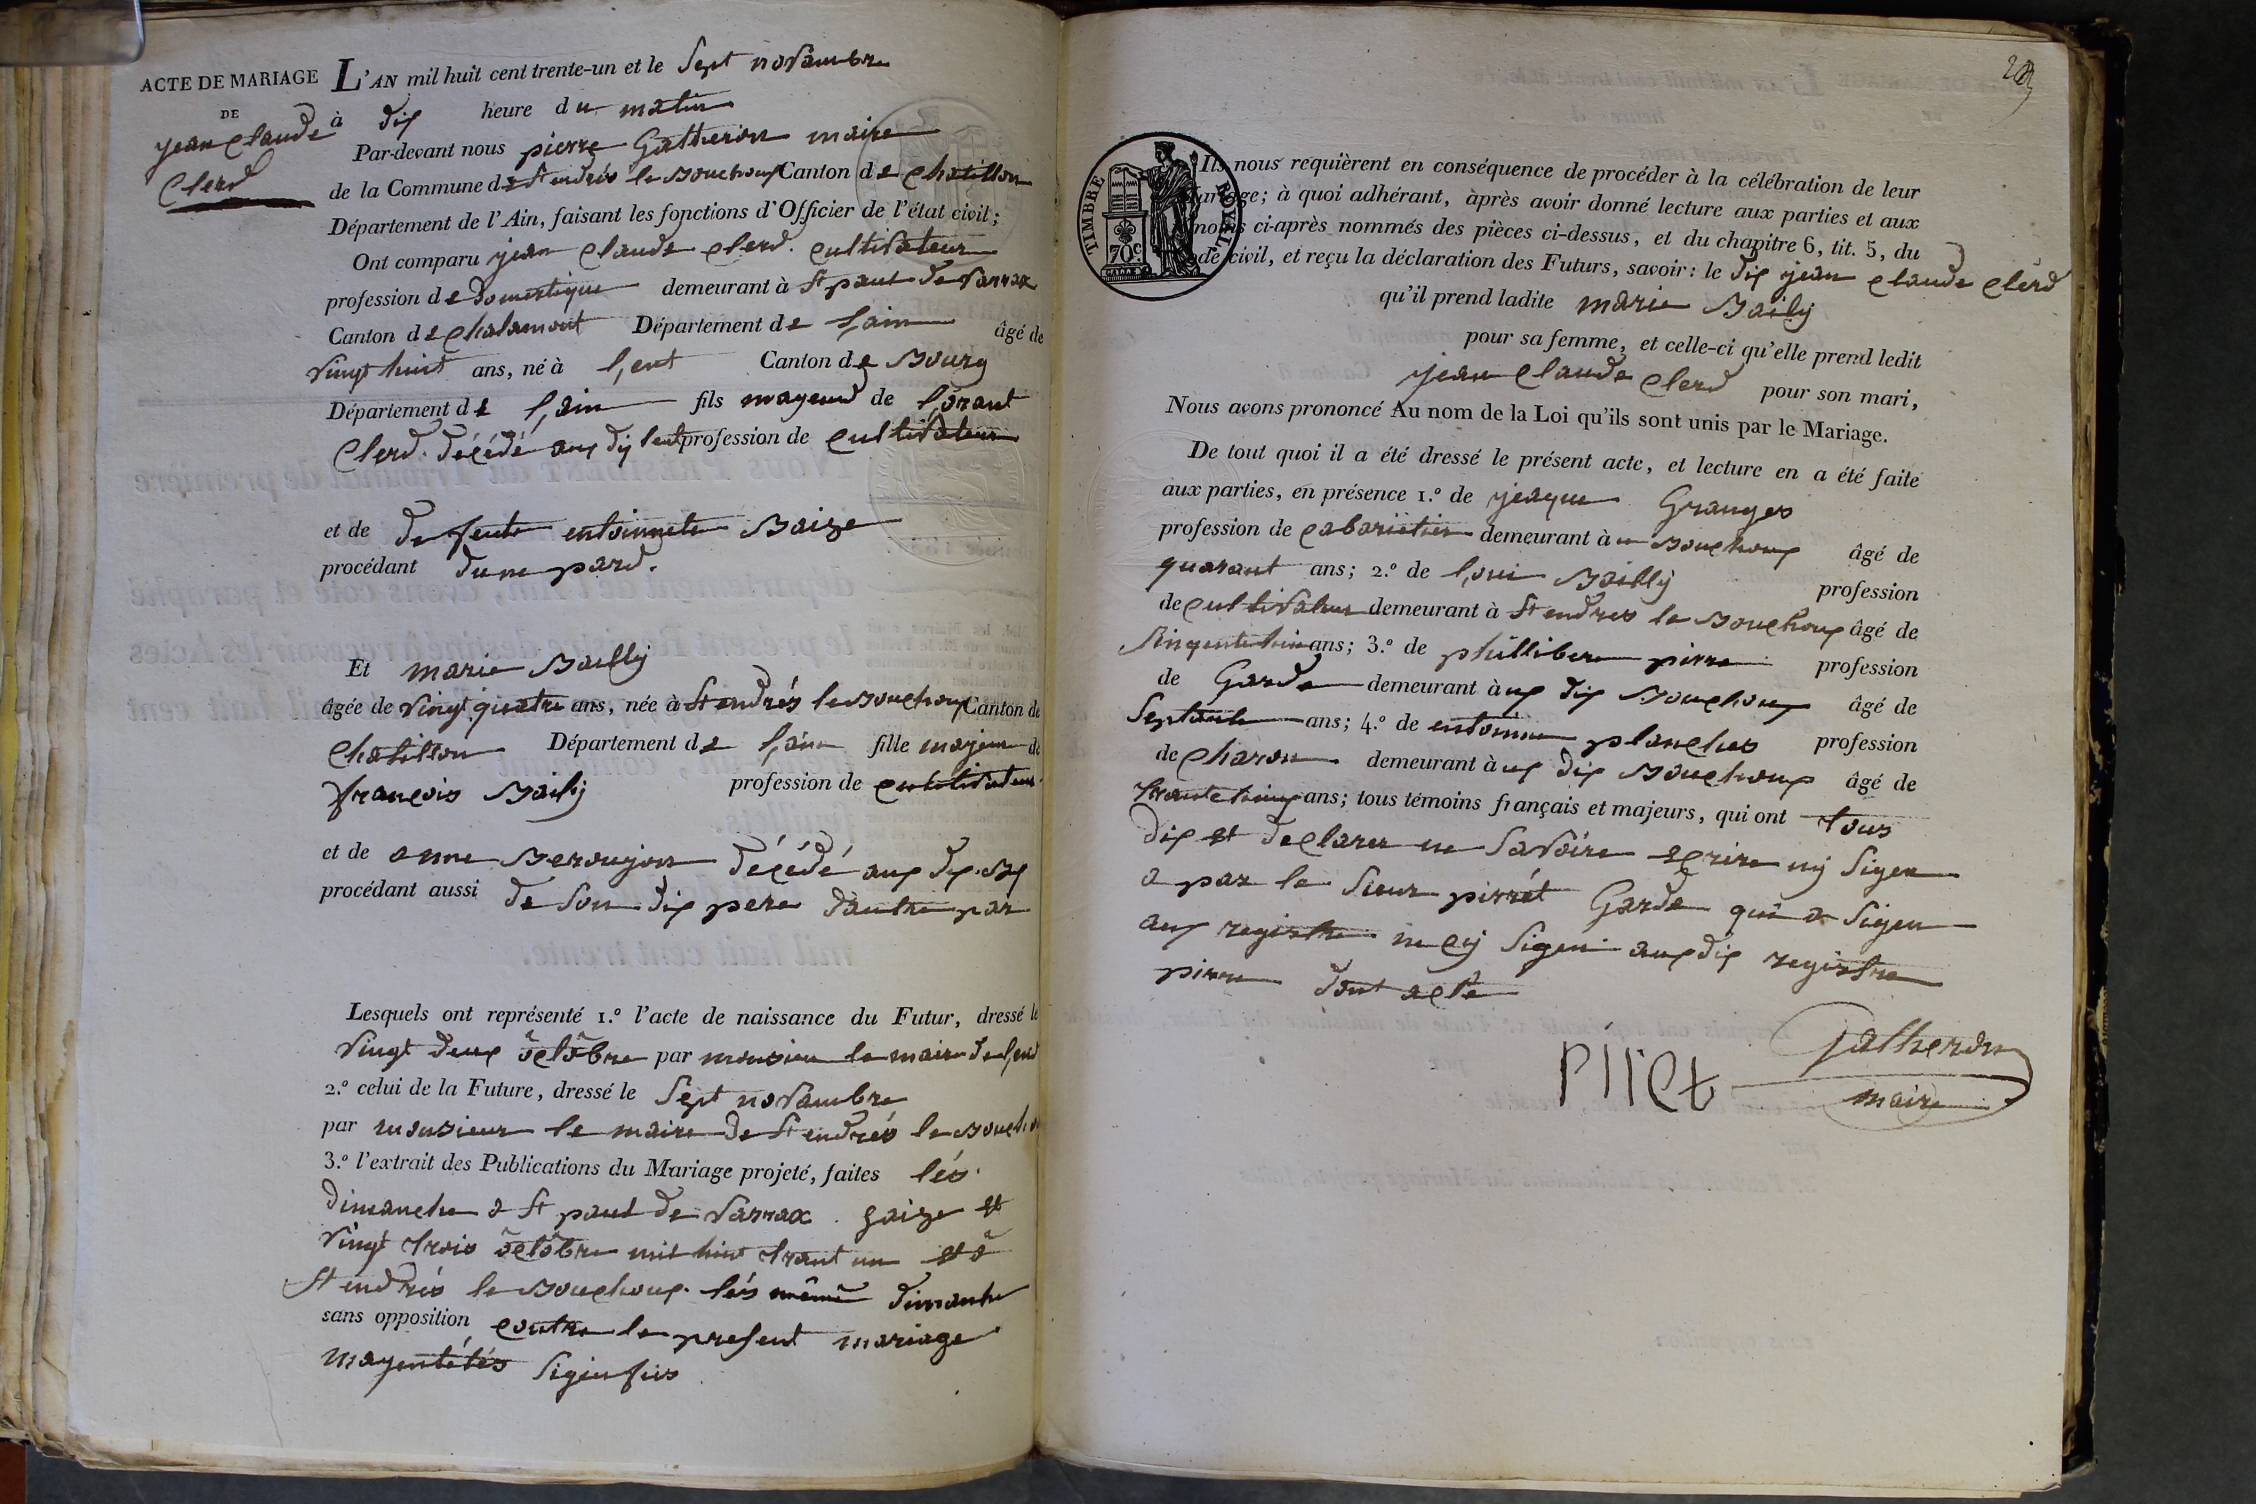 ACTE DE MARIAGE
DE
jean claude
Clerd
L'AN mil huit cent trente-un et le Sept novambre
à dix heure du matin
Par-devant nous pierre Gatheron maire
de la Commune de St endrés le Bouchoux Canton de chatillon
Département de l'Ain, faisant les fonctions d'Officier de l'état civil;
Ont comparu jean claude clerd. cultivateur
profession de domestique demeurant à St paul de varrax
Canton de chalamont Département de l,ain âgé de
vingt huit ans, né à l,ent Canton de Bourg
Département de l,ain fils mayeurd de l,orant
Clerd. décédé aux dij lent profession de cultivateur
et de defeute entoinnete Baize
procédant dune pard.
Et marie Bailly
âgée de vingt quatre ans, née à St endrés le Bouchoux Canton de
chatillon Département de l,ain fille majeure de
françois Baily profession de cultivateur
et de anne Beroujon décédé aux dix. Bx
procédant aussi de son dix pere dautre par
Lesquels ont représenté 1.º l'acte de naissance du Futur, dressé le
vingt deux octobre par monsieu le maire de lend
2.º celui de la Future, dressé le Sept novambre
par monsieur le maire de St endrés le Bouchou
3.º l'extrait des Publications du Mariage projeté, faites lés
dimanche a St paul de varrax Saize et
vingt trois octobre mil huit trant un et a
St endrés le Bouchoux. lés même dimanche
sans opposition contre le present mariage
Ils nous requièrent en conséquence de procéder à la célébration de leur
Mariage; à quoi adhérant, après avoir donné lecture aux parties et aux
ci-après nommés des pièces ci-dessus, et du chapitre 6, tit. 5, du
civil, et reçu la déclaration des Futurs, savoir: le dix jean claude clerd
TIMBRE ROYAL
70c
qu'il prend ladite marie Baily
pour sa femme, et celle-ci qu'elle prend ledit
jean claude clerd pour son mari,
Nous avons prononcé Au nom de la Loi qu'ils sont unis par le Mariage.
De tout quoi il a été dressé le présent acte, et lecture en a été faite
aux parties, en présence 1.º de jeaque Granges
profession de cabarietier demeurant à u Bouchoux âgé de
quarant ans; 2.º de l,oui Bailly profession
de cultivateur demeurant à St endres le Bouchoux âgé de
ans; 3.º de phillibere pirre profession
de Garde demeurant à ux dix Bouchoux âgé de
Septante ans; 4.º de entoinne planches profession
de charon demeurant à ux dix Bouchoux âgé de
ans; tous témoins français et majeurs, qui ont tous
dix et declarer ne savoire ecrire nij Sigen
a par le Sieur pirrét Garde qui a Sigen
aux registre Sigen aux dix registre
pirre dont acte
Piret
Gatheron
maire